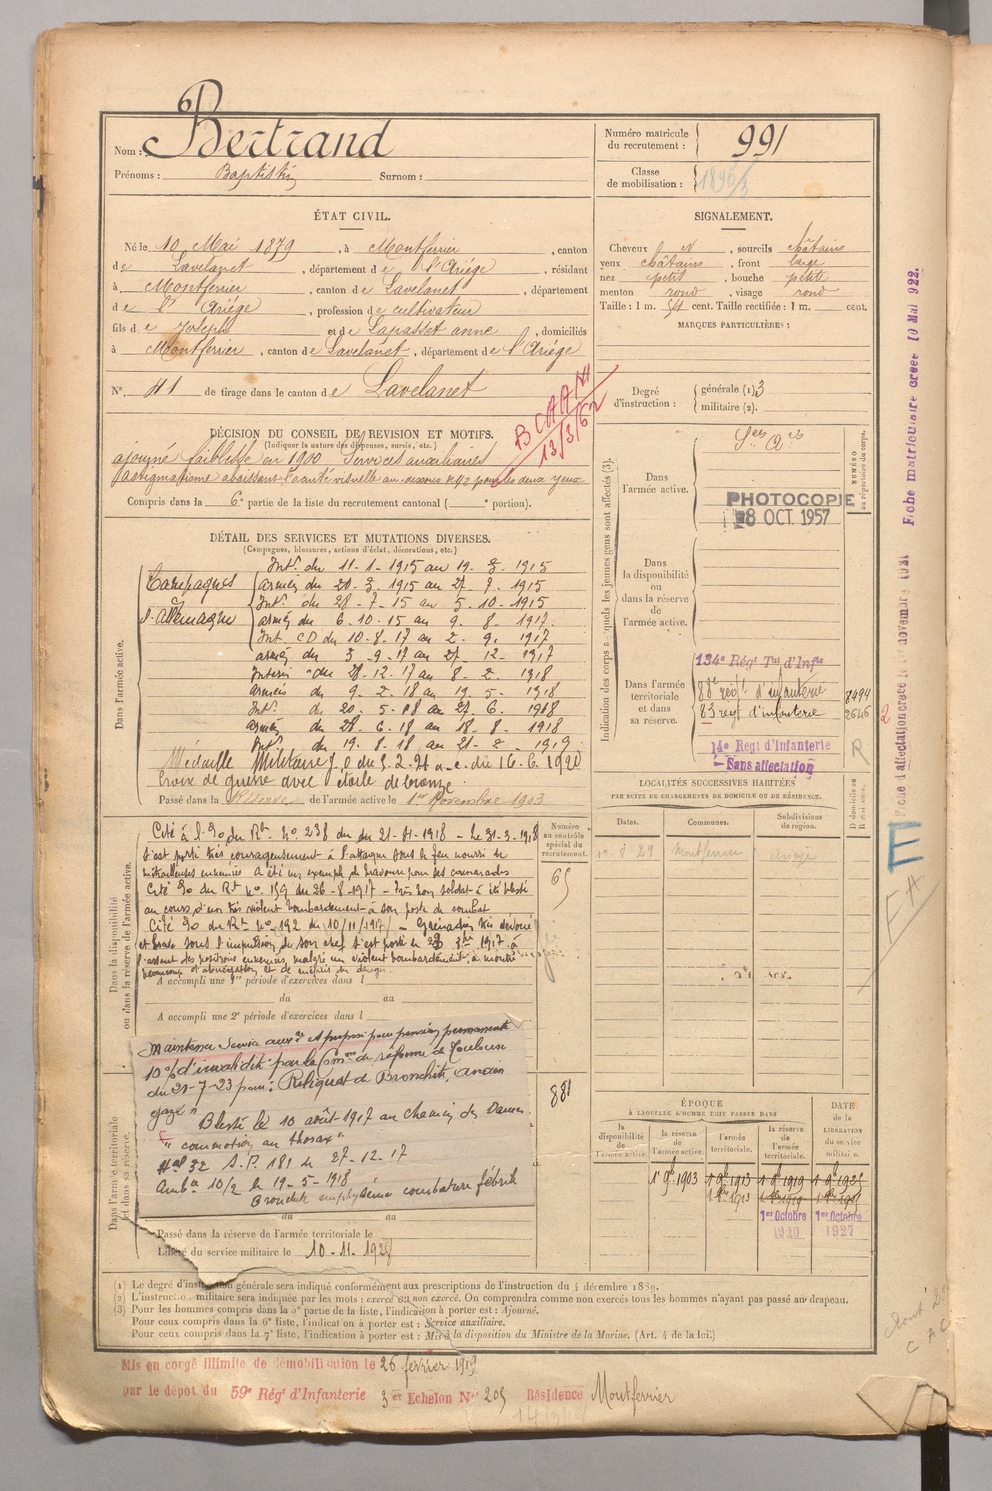 Nom : Bertrand
Prénoms : Baptistin Surnom :
Numéro matricule du recrutement : 991
Classe de mobilisation : 1896/3
ÉTAT CIVIL.
Né le 10 Mai 1879, à Montferrier, canton
de Lavelanet, département de l'Ariége, résidant
à Montferrier, canton de Lavelanet, département
de l'Ariége, profession de cultivateur
fils de Joseph et de Lapasset anne, domiciliés
à Montferrier, canton de Lavelanet, département de l'Ariége
N° 41 de tirage dans le canton de Lavelanet
SIGNALEMENT.
Cheveux et, sourcils châtains
yeux châtains, front large
nez petit, bouche petite
menton rond, visage rond
Taille : 1 m. 54 cent. Taille rectifiée : 1 m. cent.
MARQUES PARTICULIÈRES :
Degré d'instruction : générale (1) 3
militaire (2).
BCAAM
13/3/62
DÉCISION DU CONSEIL DE REVISION ET MOTIFS.
(Indiquer la nature des dispenses, sursis, etc.)
ajourné faiblesse en 1900 Services auxiliaires
astigmatisme abaissant l'acuité visuelle au-dessous de 1/2 pour les deux yeux
Compris dans la 6e partie de la liste du recrutement cantonal ( e portion).
DÉTAIL DES SERVICES ET MUTATIONS DIVERSES.
(Campagnes, blessures, actions d'éclat, décorations, etc.)
Dans l'armée active.
Campagnes
c/
l'allemagne
Intr. du 11-1-1915 au 19-3-1915
armées du 20-3-1915 au 27-7-1915
Intr. du 28-7-15 au 5-10-1915
armées du 6-10-15 au 9-8-1917
Int. CD du 10-8-17 au 2-9-1917
armées du 3-9-17 au 27-12-1917
Intérir du 28-12-17 au 8-2-1918
armées du 9-2-18 au 19-5-1918
Intr. du 20-5-18 au 27-6-1918
armées du 28-6-18 au 18-8-1918
Intr. du 19-8-18 au 21-2-1919
Médaille Militaire J.O du 5.2.21 a.c. du 16.6.1920
Croix de guerre avec étoile de bronze
Passé dans la Réserve de l'armée active le 1er Novembre 1903
Indication des corps auxquels les jeunes gens sont affectés (3).
Dans l'armée active.
Ses Ares
PHOTOCOPIE
8 OCT. 1957
NUMÉRO au répertoire du corps.
Dans la disponibilité ou dans la réserve de l'armée active.
Dans l'armée territoriale et dans sa réserve.
134e Régt Tal d'Infie
88e regt d'infanterie 8494
83 regt d'infanterie 2646
14e Regt d'Infanterie
Sans affectation
R
Dans la disponibilité ou dans la réserve de l'armée active.
Cité à l'Do du Rt. No 238 du 21-4-1918 - Le 31-3-1918
s'est porté très courageusement à l'attaque sous le feu nourri de
mitrailleuses ennemies A été un exemple de bravoure pour ses camarades
Cité Do du Rt no 159 du 26-8-1917 - Très bon soldat a été blessé
au cours d'un très violent bombardement à son poste de combat
Cité Do du Rt no 192 du 10/11/1917 - Grenadier très dévoué
et brave sous l'impulsion de son chef s'est porté le 1917 à
l'assaut des positions ennemies, malgré un violent bombardement, a montré
beaucoup d'abnégation et de mépris du danger
A accompli une 1re période d'exercices dans l
du au
A accompli une 2e période d'exercices dans l
Numéro au contrôle spécial du recrutement.
65
881
Maintenu Service auxre et proposé pour pension permanente
10% d'invalidité par la Comon de réforme de Toulouse
du 21-7-23 pour : Reliquat de Bronchite, ancien
gazé
Blessé le 10 août 1917 au chemin des Dames
"commotion au thorax"
Hal 32 S.P. 181 le 27-12-17
Ambce 10/2 le 19-5-1918
Bronchite emphysème courbature fébrile
Dans l'armée territoriale et dans sa réserve.
du au
Passé dans la réserve de l'armée territoriale le
Libéré du service militaire le 10-11-1928
LOCALITÉS SUCCESSIVES HABITÉES
PAR SUITE DE CHANGEMENTS DE DOMICILE OU DE RÉSIDENCE.
Dates. Communes. Subdivisions de région. D domicile ou R résidence.
29 Montferrier Ariège
ÉPOQUE
À LAQUELLE L'HOMME DOIT PASSER DANS
DATE de la LIBÉRATION du service militaire.
la disponibilité de l'armée active. la réserve de l'armée active. l'armée territoriale. la réserve de l'armée territoriale.
1 9bre 1903 1 9bre 1913 1 9bre 1919 1 9bre 1925
1er Octobre 1920 1er Octobre 1927
(1) Le degré d'instruction générale sera indiqué conformément aux prescriptions de l'instruction du 4 décembre 1889.
(2) L'instruction militaire sera indiquée par les mots : exercé ou non exercé. On comprendra comme non exercés tous les hommes n'ayant pas passé au drapeau.
(3) Pour les hommes compris dans la 5e partie de la liste, l'indication à porter est : Ajourné.
Pour ceux compris dans la 6e liste, l'indication à porter est : Service auxiliaire.
Pour ceux compris dans la 7e liste, l'indication à porter est : Mis à la disposition du Ministre de la Marine. (Art. 4 de la loi.)
Mis en congé illimité de démobilisation le 26 février 1919
par le dépôt du 59e Régt d'Infanterie 3er Echelon No 205 Résidence Montferrier
Fiche matriculaire créée 10 Mai 922.
Fiche d'affectation créée le novembre 1931
2
E